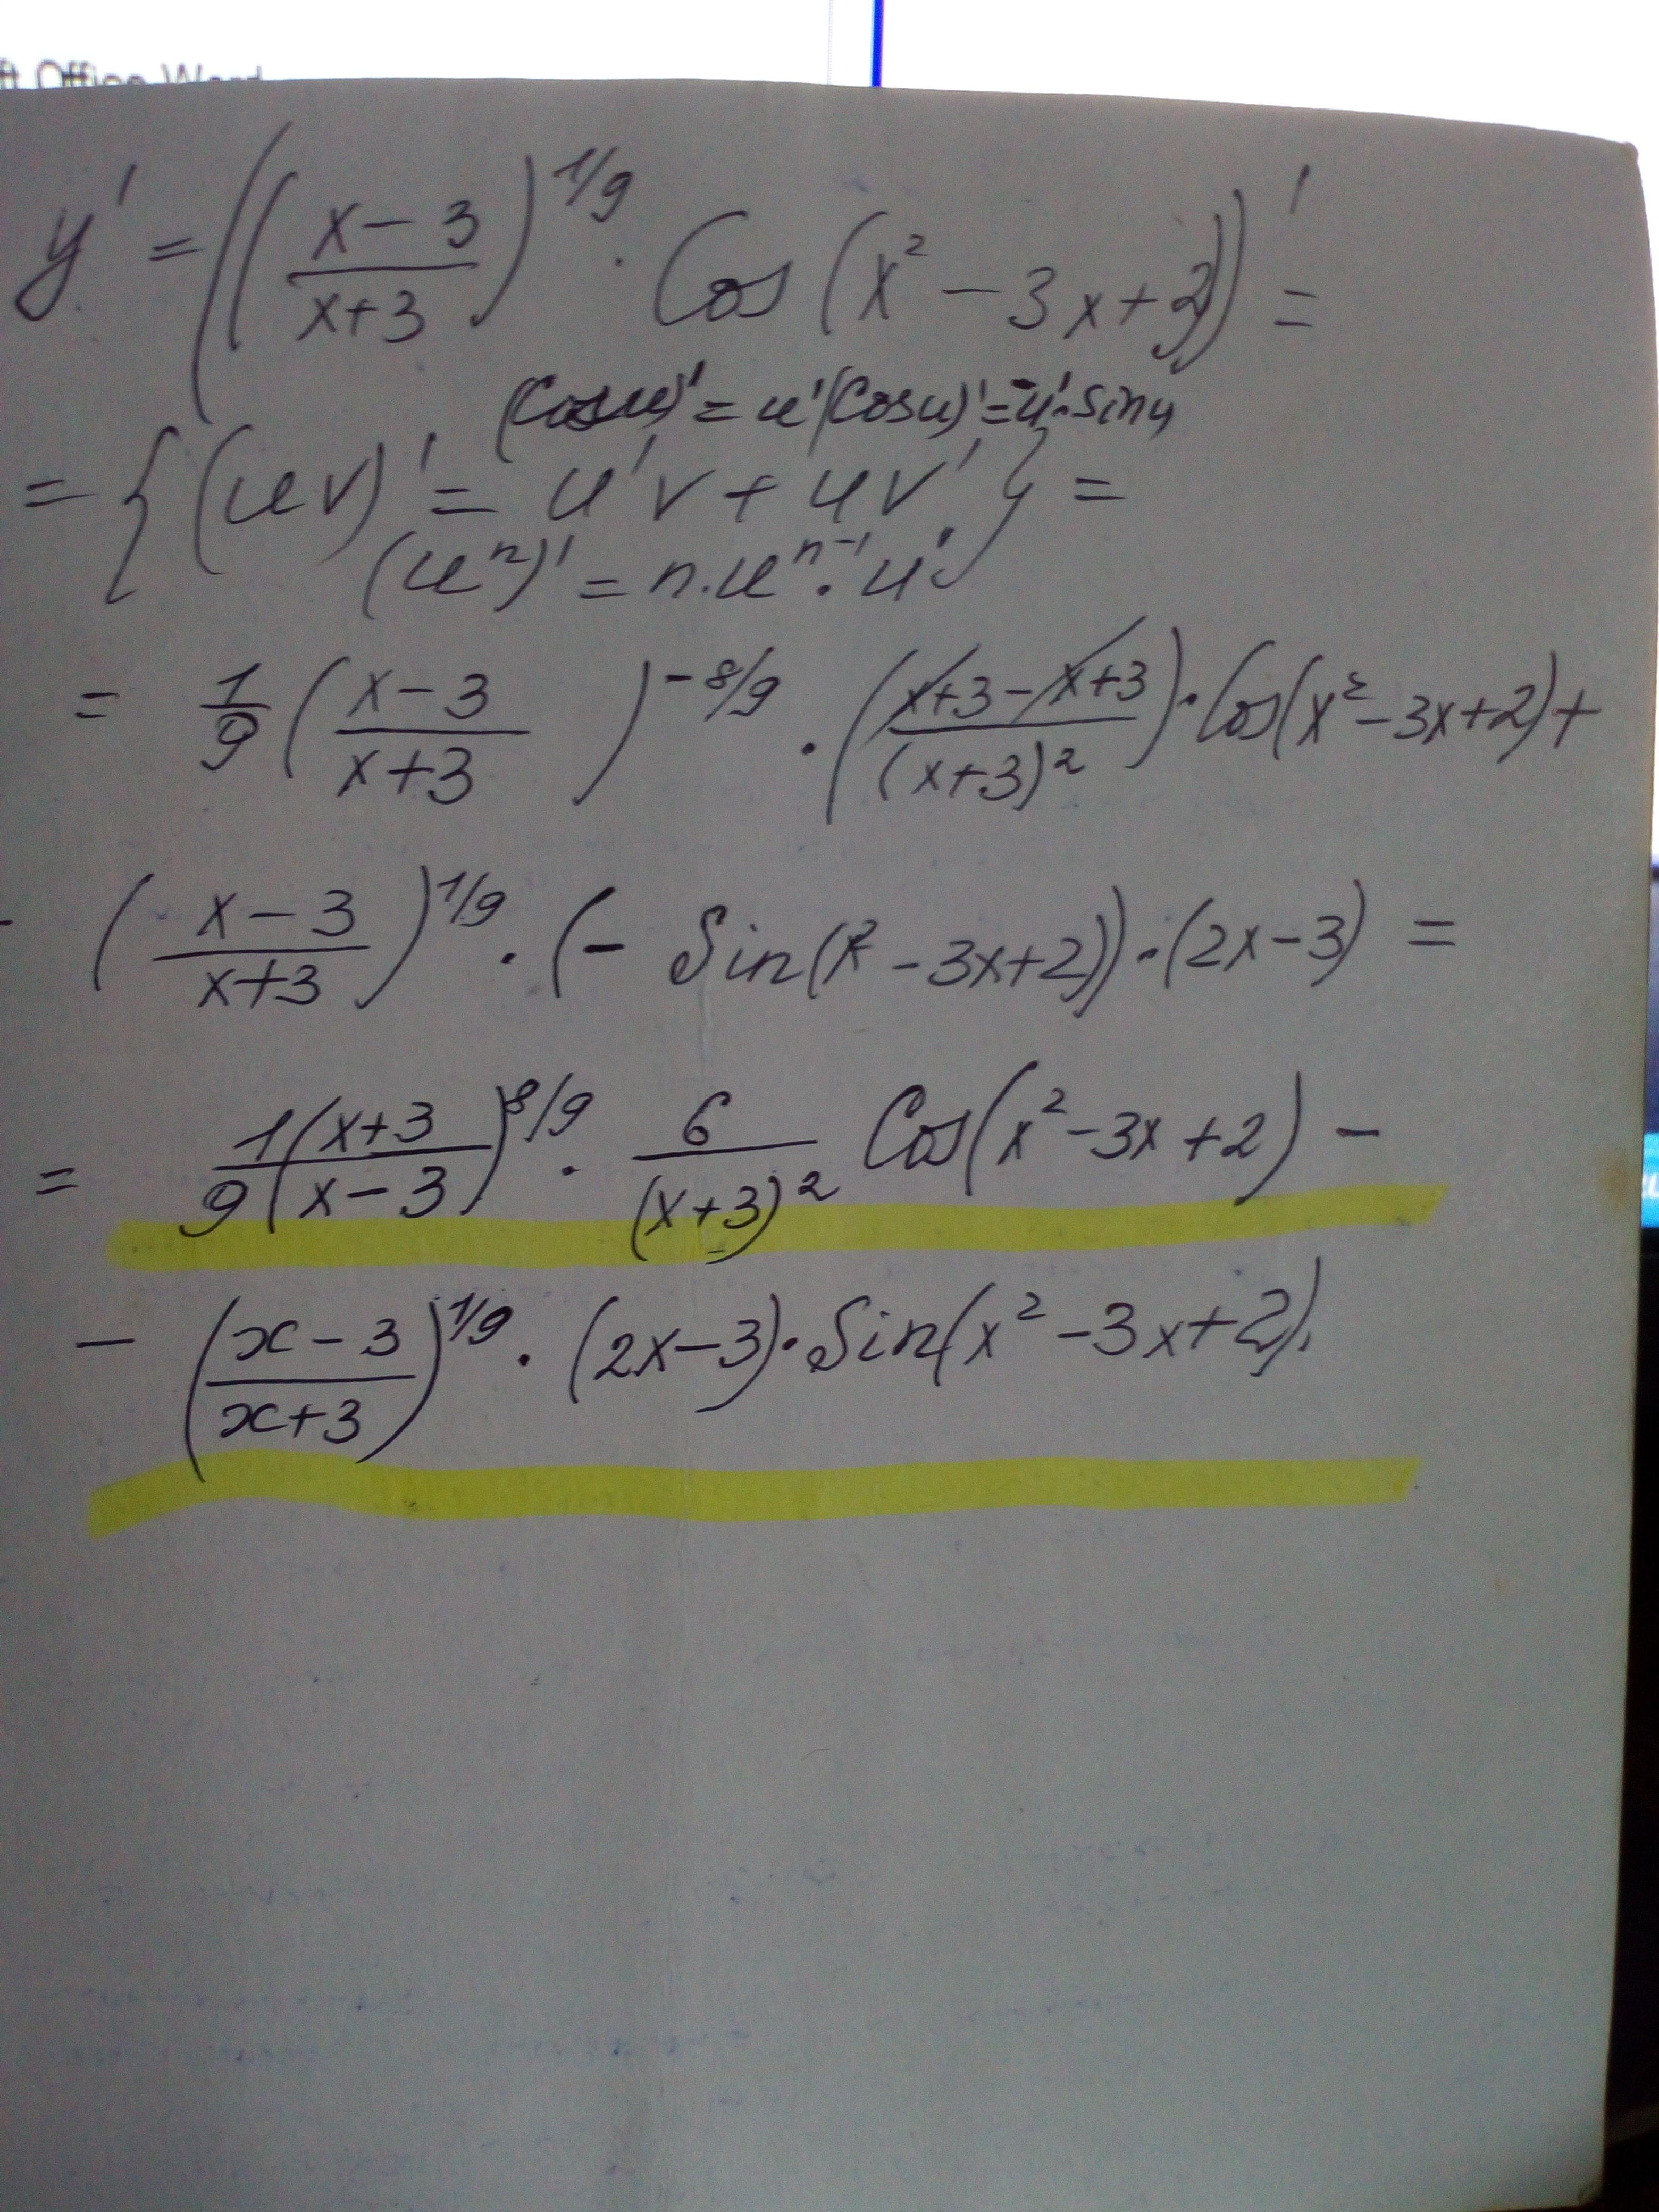 ft Office Word
y' = ((x-3)/(x+3))^1/9 · Cos(x²-3x+2))' =
(Cosu)' = u'(Cosu)' = -u'·Sinu
= {(uv)' = u'v + uv'.} =
(uⁿ)' = n.uⁿ⁻¹·u'
= 1/9 ((x-3)/(x+3))^-8/9 · ((x+3-x+3)/(x+3)²)·Cos(x²-3x+2)+
((x-3)/(x+3))^1/9 · (- Sin(x²-3x+2))·(2x-3) =
= 1/9 ((x+3)/(x-3))^8/9 · 6/(x+3)² Cos(x²-3x+2) -
- ((x-3)/(x+3))^1/9 · (2x-3)·Sin(x²-3x+2).